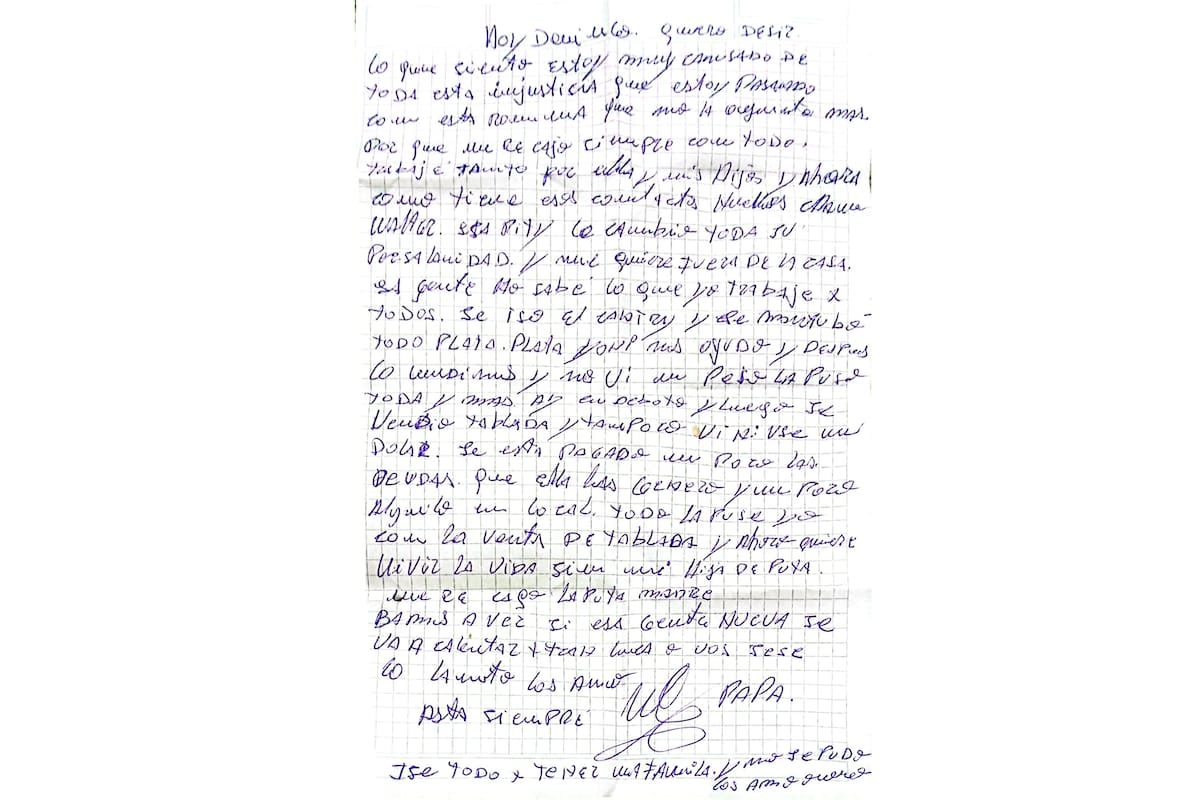 Hoy Domingo. quiero desir
lo que siento estoy muy cansado de
toda esta injusticia que estoy pasando
con esta que no la aguanto mas.
Por que me re cago siempre con todo.
trabaje tanto por ella y mis Hijos y Ahora
como tiene esos contactos Nuevos
Walter. esa Pity lo cambio toda su
Persalanidad. y me quiere fuera de la casa.
esa gente No sabe lo que yo trabaje x
todos. Se iso el y se mantubo
todo Plata. Plata y mas ayudo y Despues
lo vendimos y no vi un Peso La Puse
toda y mas en Devoto y luego se
Vendio tablada y tampoco vi ni use un
Dolar. Se esta Pagado un Poco las
Deudas. que ella las Genero y un Poco
Alquilo un local. todo la Puse yo
con la venta de tablada y Ahora quiere
vivir la vida sin mi Hija de Puta.
me re cago la puta madre
Bamos a ver si esa Gente Nueva se
va a calentar x o vos sese
lo lamento los Amo
PAPA.
Asta siempre
Ise todo x tener una familia. y no se pudo
los Amo